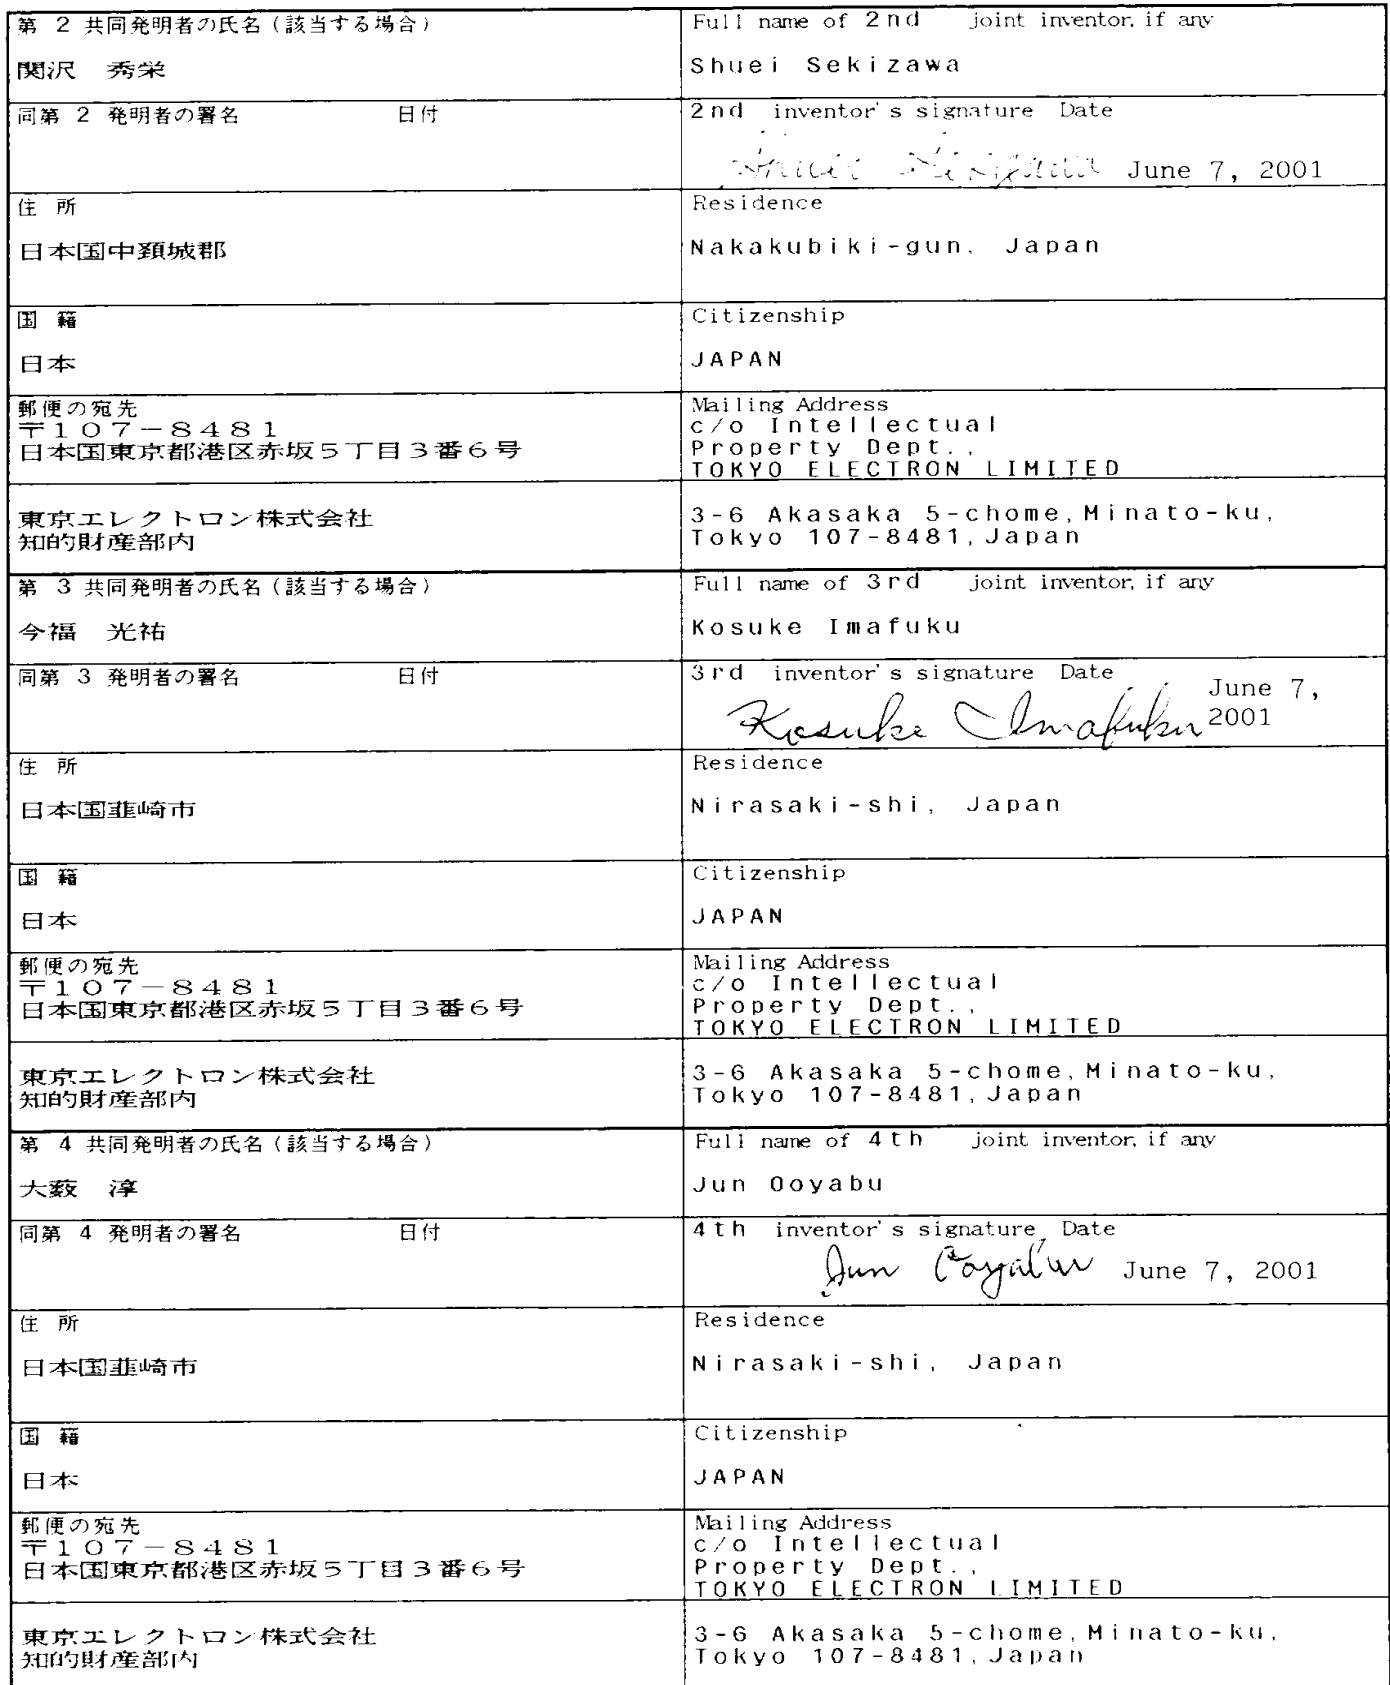 第 2 共同発明者の氏名（該当する場合）
Full name of 2nd joint inventor, if any
関沢 秀栄
Shuei Sekizawa
同第 2 発明者の署名 日付
2nd inventor's signature Date
Shuei Sekizawa June 7, 2001
住 所
Residence
日本国中頚城郡
Nakakubiki-gun, Japan
国 籍
Citizenship
日本
JAPAN
郵便の宛先
〒107-8481
日本国東京都港区赤坂5丁目3番6号
Mailing Address
c/o Intellectual
Property Dept.,
TOKYO ELECTRON LIMITED
東京エレクトロン株式会社
知的財産部内
3-6 Akasaka 5-chome, Minato-ku,
Tokyo 107-8481, Japan
第 3 共同発明者の氏名（該当する場合）
Full name of 3rd joint inventor, if any
今福 光祐
Kosuke Imafuku
同第 3 発明者の署名 日付
3rd inventor's signature Date
Kosuke Imafuku June 7,
2001
住 所
Residence
日本国韮崎市
Nirasaki-shi, Japan
国 籍
Citizenship
日本
JAPAN
郵便の宛先
〒107-8481
日本国東京都港区赤坂5丁目3番6号
Mailing Address
c/o Intellectual
Property Dept.,
TOKYO ELECTRON LIMITED
東京エレクトロン株式会社
知的財産部内
3-6 Akasaka 5-chome, Minato-ku,
Tokyo 107-8481, Japan
第 4 共同発明者の氏名（該当する場合）
Full name of 4th joint inventor, if any
大薮 淳
Jun Ooyabu
同第 4 発明者の署名 日付
4th inventor's signature Date
Jun Ooyabu June 7, 2001
住 所
Residence
日本国韮崎市
Nirasaki-shi, Japan
国 籍
Citizenship
日本
JAPAN
郵便の宛先
〒107-8481
日本国東京都港区赤坂5丁目3番6号
Mailing Address
c/o Intellectual
Property Dept.,
TOKYO ELECTRON LIMITED
東京エレクトロン株式会社
知的財産部内
3-6 Akasaka 5-chome, Minato-ku,
Tokyo 107-8481, Japan